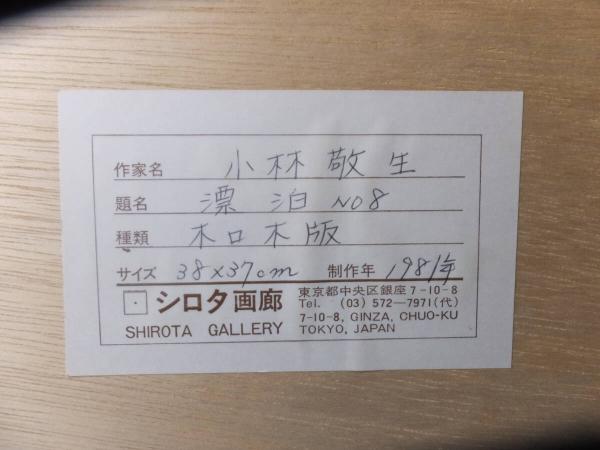 作家名 小林敬生
題名 漂泊 NO8
種類 木口木版
サイズ 38×37cm 制作年 1981年
シロタ画廊
SHIROTA GALLERY
東京都中央区銀座7-10-8
Tel. (03) 572—7971(代)
7-10-8, GINZA, CHUO-KU
TOKYO, JAPAN